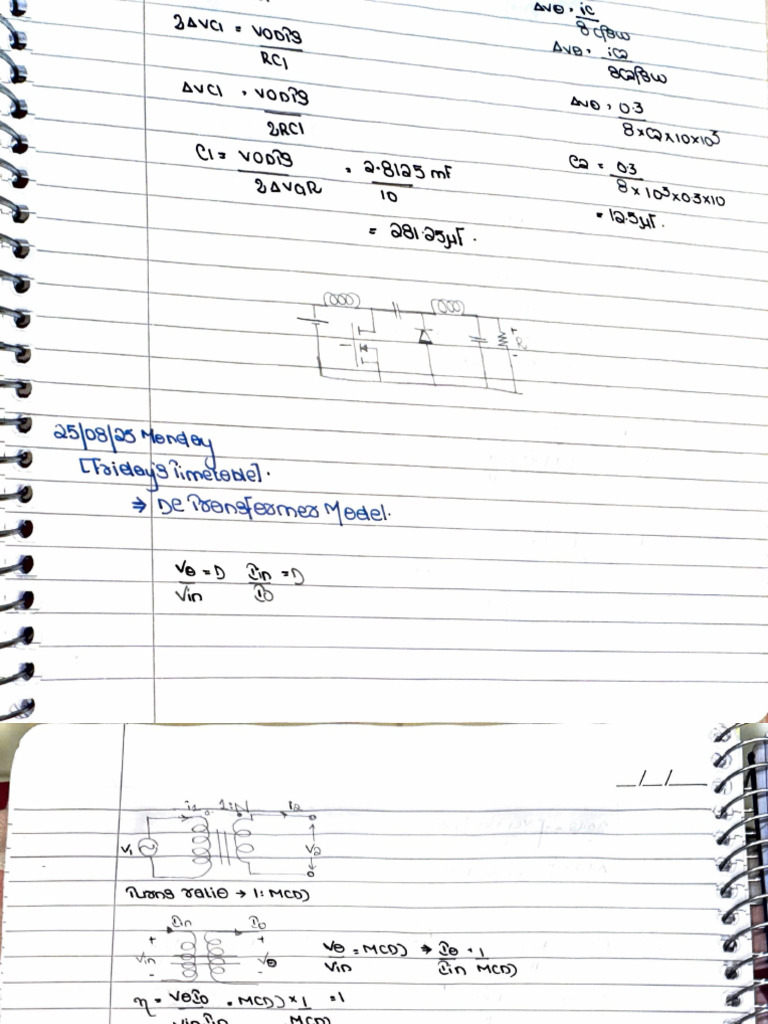 2ΔVC1 = VODTs
RC1
ΔVC1 = VODTs
2RC1
C1 = VODTs = 2.8125 mF
2ΔVQR 10
= 281.25μF.
ΔVo = ic
8Cfsw
ΔVo = ic2
8C2fsw
ΔVo = 0.3
8×C2×10×10³
C2 = 0.3
8×10³×0.3×10
= 12.5μF.
+
R
-
25/08/25 Monday
[Friday's Timetable].
⇒ DC Transformer Model.
Vo = D Iin = D
Vin Io
_/_/_
i1 1:N i2
V1 V2
Turns ratio → 1: M(D)
Iin Io
+ +
Vin Vo
- -
Vo = M(D) → Io = 1
Vin Iin M(D)
η = VoIo = M(D) × 1 = 1
VinIin M(D)